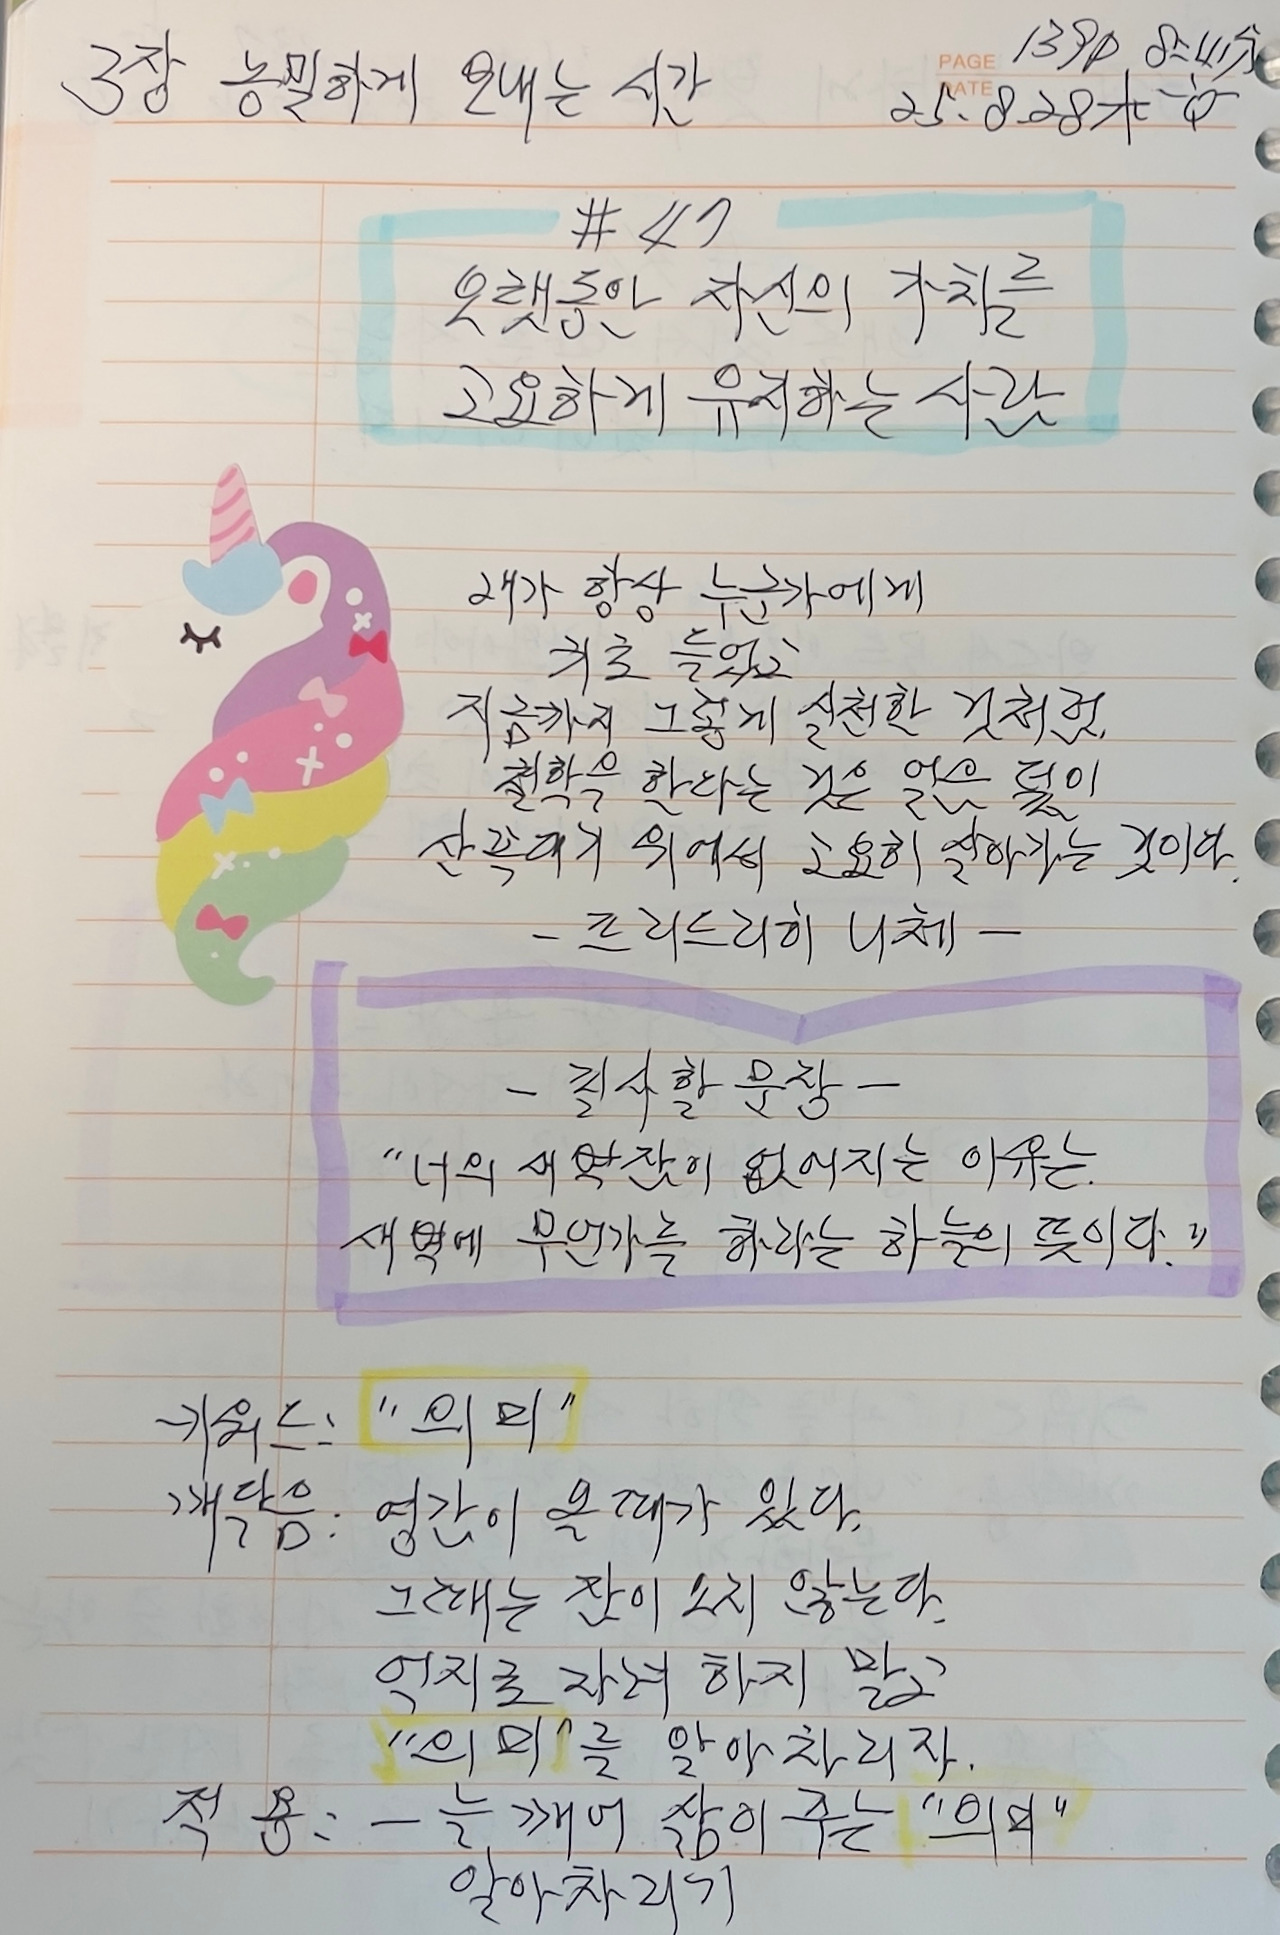 3장 농밀하게 보내는 시간
PAGE 139p
DATE 25. 8. 28
#47
오랫동안 자신의 가치를
고요하게 유지하는 사람
내가 항상 누군가에게
귀로 들었고
지금까지 그렇게 실천한 것처럼,
철학을 한다는 것은 얼음 덮인
산꼭대기 위에서 고요히 살아가는 것이다.
- 프리드리히 니체 -
- 필사할 문장 -
"너의 새벽잠이 없어지는 이유는
새벽에 무언가를 하라는 하늘의 뜻이다."
키워드: "의미"
깨달음: 영감이 올 때가 있다.
그때는 잠이 오지 않는다.
억지로 자려 하지 말고
"의미"를 알아차리자.
적용: - 늘 깨어 삶이 주는 "의미"
알아차리기